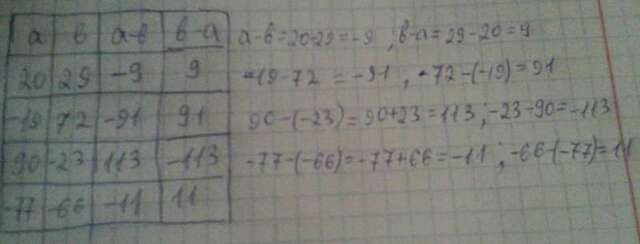 a b a-b b-a a-b=20-29=-9 ; b-a=29-20=9
20 29 -9 9 -19-72=-91 , -72-(-19)=91
-19 72 -91 91 90-(-23)=90+23=113 ; -23-90=-113
90 -23 113 -113 -77-(-66)=-77+66=-11 ; -66-(-77)=11
-77 -66 -11 11